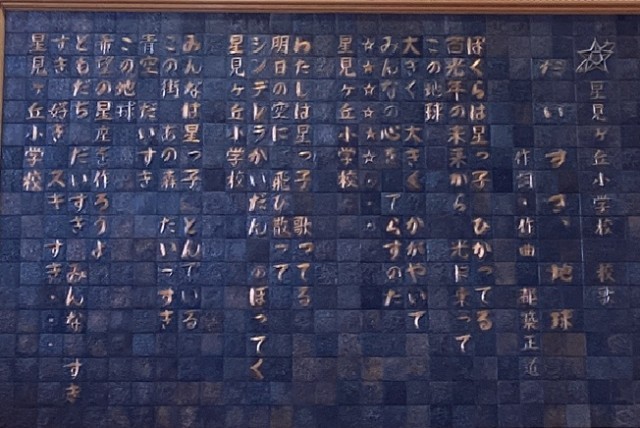 星見ヶ丘小学校 校歌
だいすき、地球
作詞・作曲 都築正道
ぼくらは星っ子 ひかってる
百光年の未来から 光に乗って
この地球
大きく 大きく かがやいて
みんなの心を てらすのだ
☆☆☆☆☆・・・
星見ヶ丘小学校
わたしは星っ子 歌ってる
明日の空に 飛び散って
シンデレラかいだん のぼってく
星見ヶ丘小学校
みんなは星っ子 とんでいる
この街 あの森 だいすき
青空 だいすき
この地球
希望の星座を作ろうよ
ともだち だいすき みんな すき
すき 好き スキ すき・・
星見ヶ丘小学校